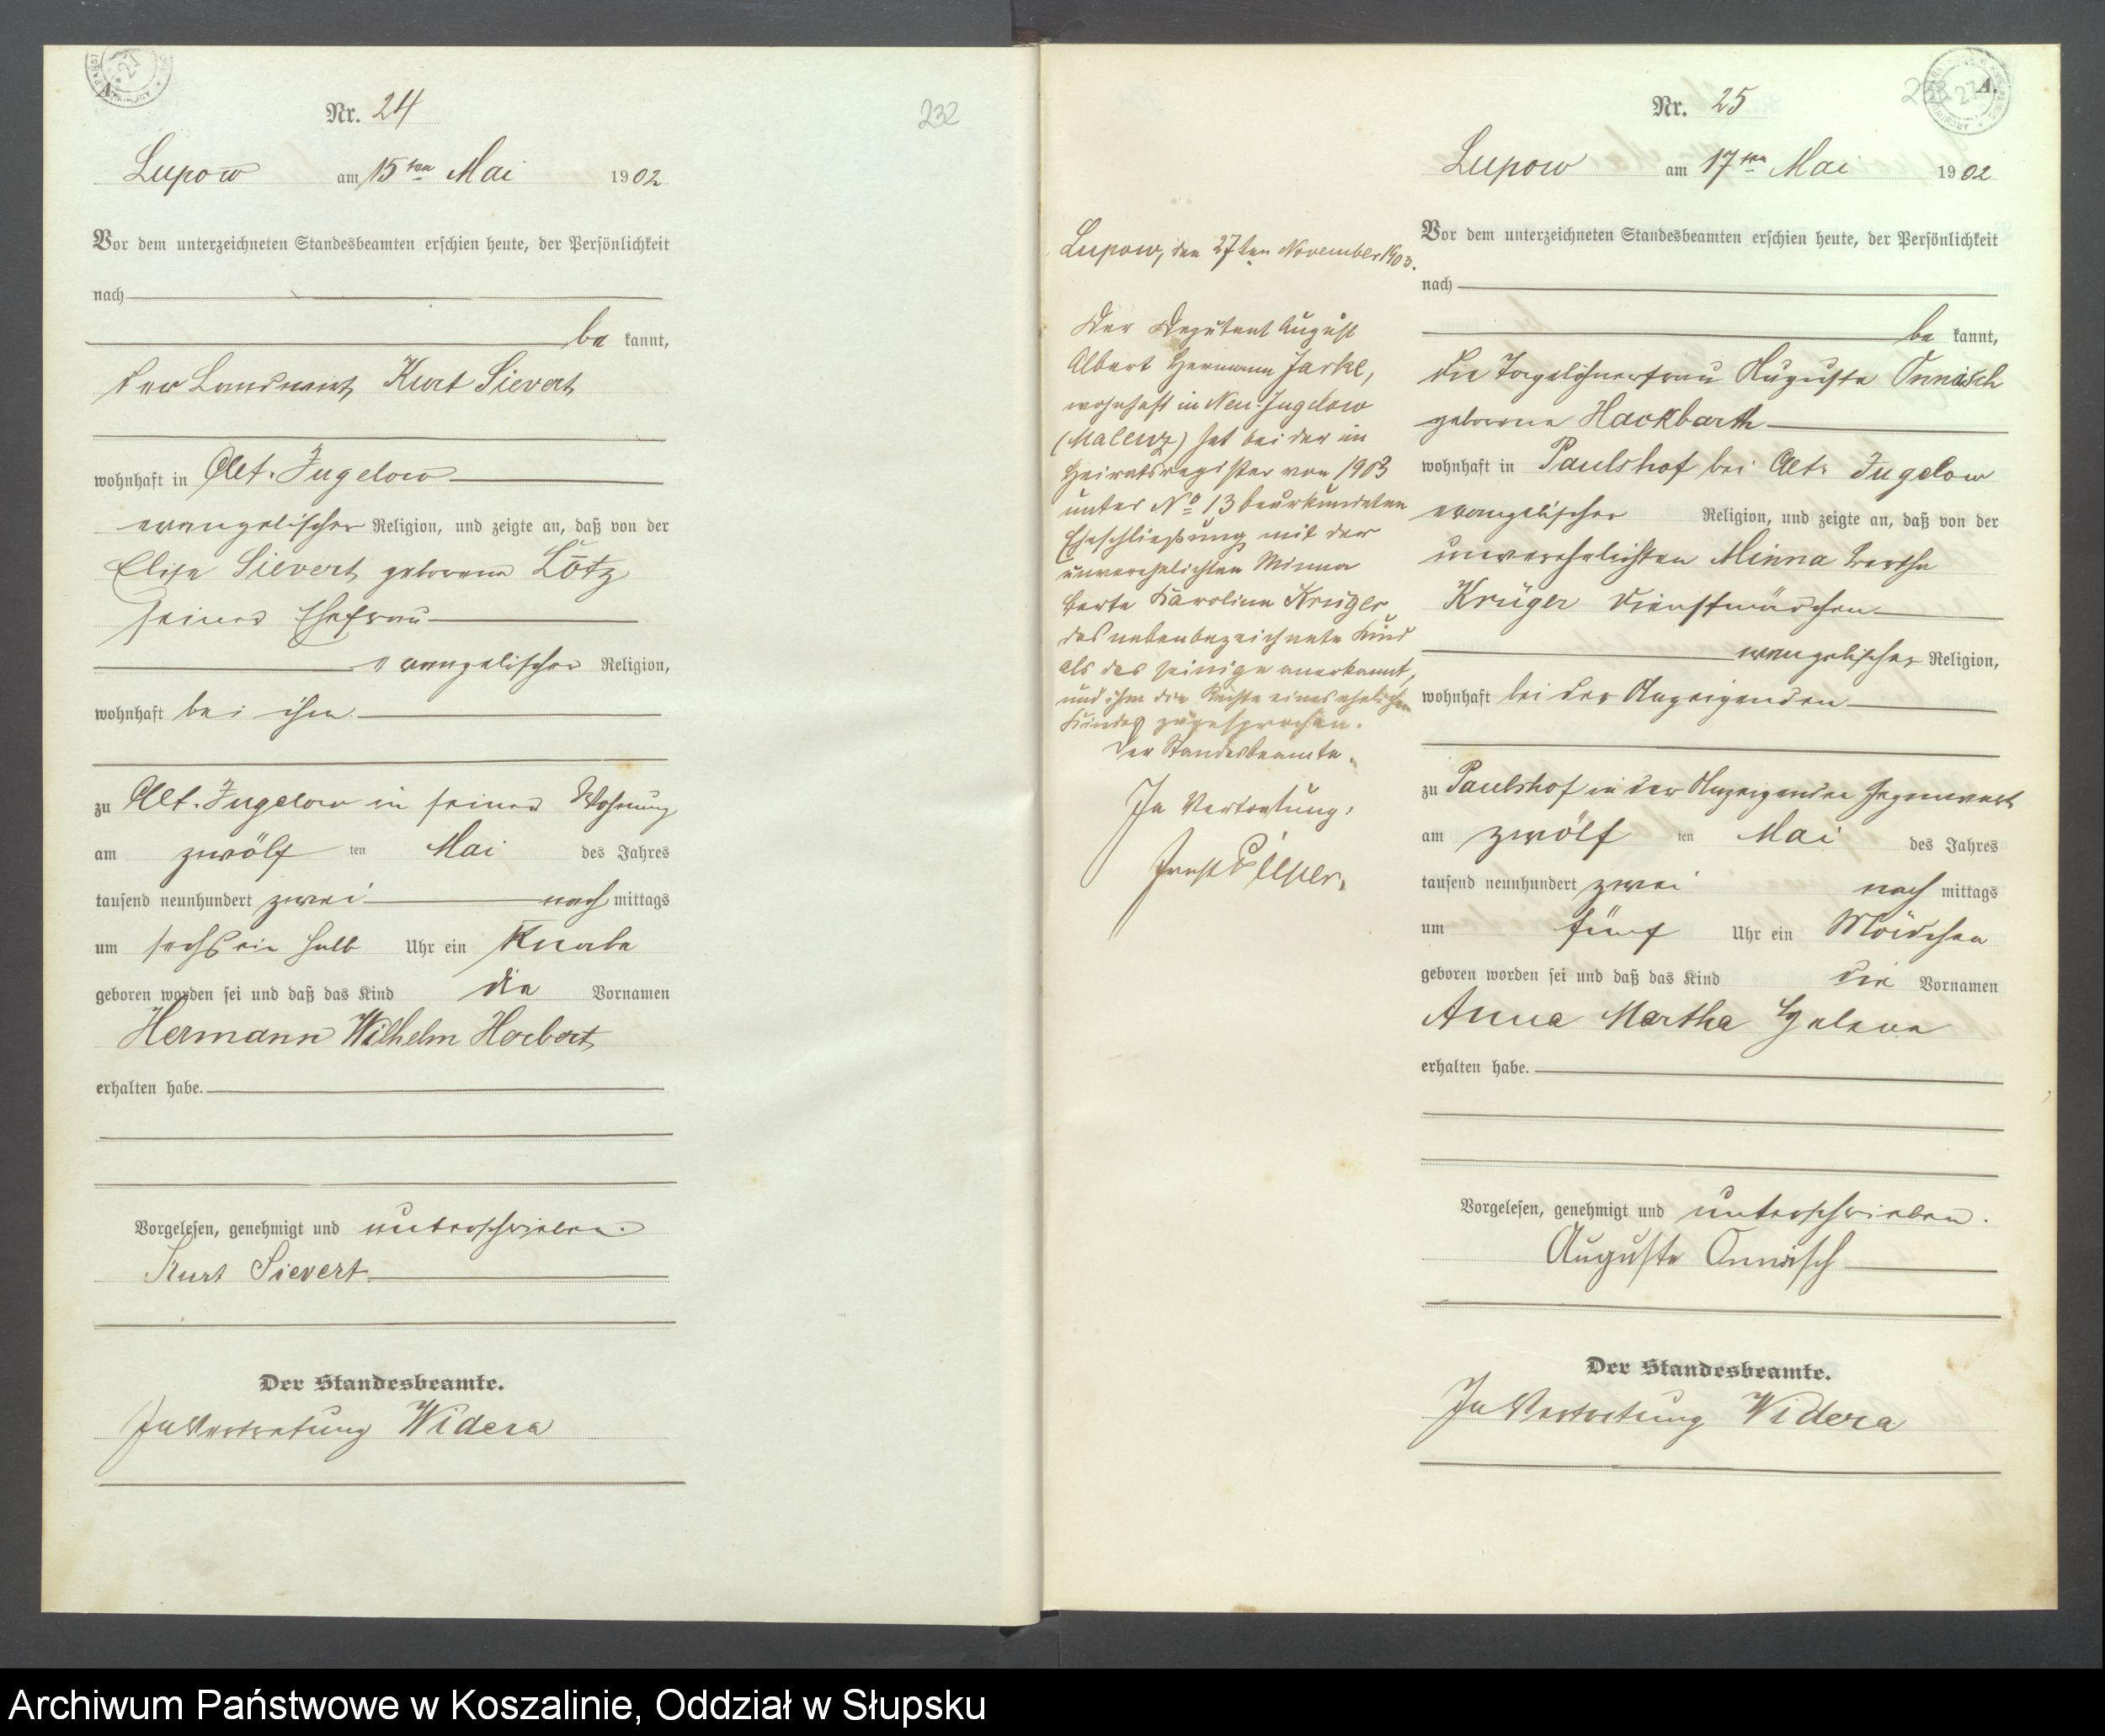 Nr. 24
232
Lupow am 15ten Mai 1902
Vor dem unterzeichneten Standesbeamten erschien heute, der Persönlichkeit
nach
be kannt,
der Landwirt Kurt Sievert
wohnhaft in Alt-Jugelow
evangelischer Religion, und zeigte an, daß von der
Elise Sievert geborene Lötz
seiner Ehefrau
evangelischer Religion,
wohnhaft bei ihm
zu Alt-Jugelow in seiner Wohnung
am zwölf ten Mai des Jahres
tausend neunhundert zwei nach mittags
um sechs ein halb Uhr ein Knabe
geboren worden sei und daß das Kind die Vornamen
Hermann Wilhelm Herbert
erhalten habe.
Vorgelesen, genehmigt und unterschrieben.
Kurt Sievert
Der Standesbeamte.
In Vertretung Widera
A.
Nr. 25
Lupow am 17ten Mai 1902
Vor dem unterzeichneten Standesbeamten erschien heute, der Persönlichkeit
nach
be kannt,
die Tagelöhnerfrau Auguste Onnasch
geborene Hackbarth
wohnhaft in Paulshof bei Alt-Jugelow
evangelischer Religion, und zeigte an, daß von der
unverehelichten Minna Bertha
Krüger Dienstmädchen
evangelischer Religion,
wohnhaft bei der Anzeigenden
zu Paulshof in der Anzeigenden Gegenwart
am zwölf ten Mai des Jahres
tausend neunhundert zwei nach mittags
um fünf Uhr ein Mädchen
geboren worden sei und daß das Kind die Vornamen
Anna Martha Helene
erhalten habe.
Vorgelesen, genehmigt und unterschrieben.
Auguste Onnasch
Der Standesbeamte.
In Vertretung Widera
Lupow, den 27ten November 1903.
Der Deputant August
Albert Hermann Jaske,
wohnhaft in Neu-Jugelow
(Malenz) hat bei der im
Heiratsregister von 1903
unter No 13 beurkundeten
Eheschließung mit der
unverehelichten Minna
Berta Karoline Krüger
das nebenbezeichnete Kind
als das seinige anerkannt,
und ihm die Rechte eines ehelichen
Kindes zugesprochen.
Der Standesbeamte.
In Vertretung:
Archiwum Państwowe w Koszalinie, Oddział w Słupsku